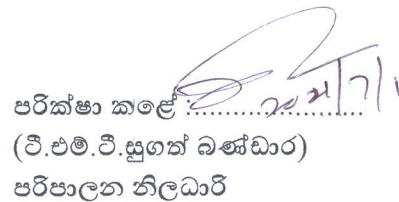 පරික්ෂා කළේ :.......................
(ටී.එම්.ටී.සුගත් බණ්ඩාර)
පරිපාලන නිලධාරි